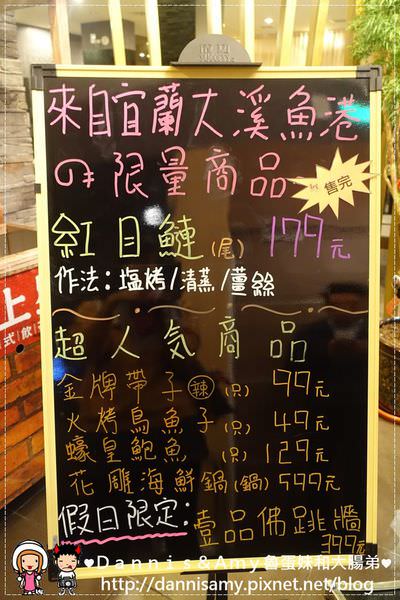 來自宜蘭大溪魚港
の限量商品
售完
紅目鰱(尾) 179元
作法:塩烤/清蒸/薑絲
超人気商品
金牌帶子(辣)(只) 99元
火烤烏魚子(只) 49元
蠔皇鮑魚(只) 129元
花雕海鮮鍋(鍋) 599元
假日限定:壹品佛跳牆
399元
♥Dannis&Amy魯蛋妹和大腸弟♥
http://dannisamy.pixnet.net/blog